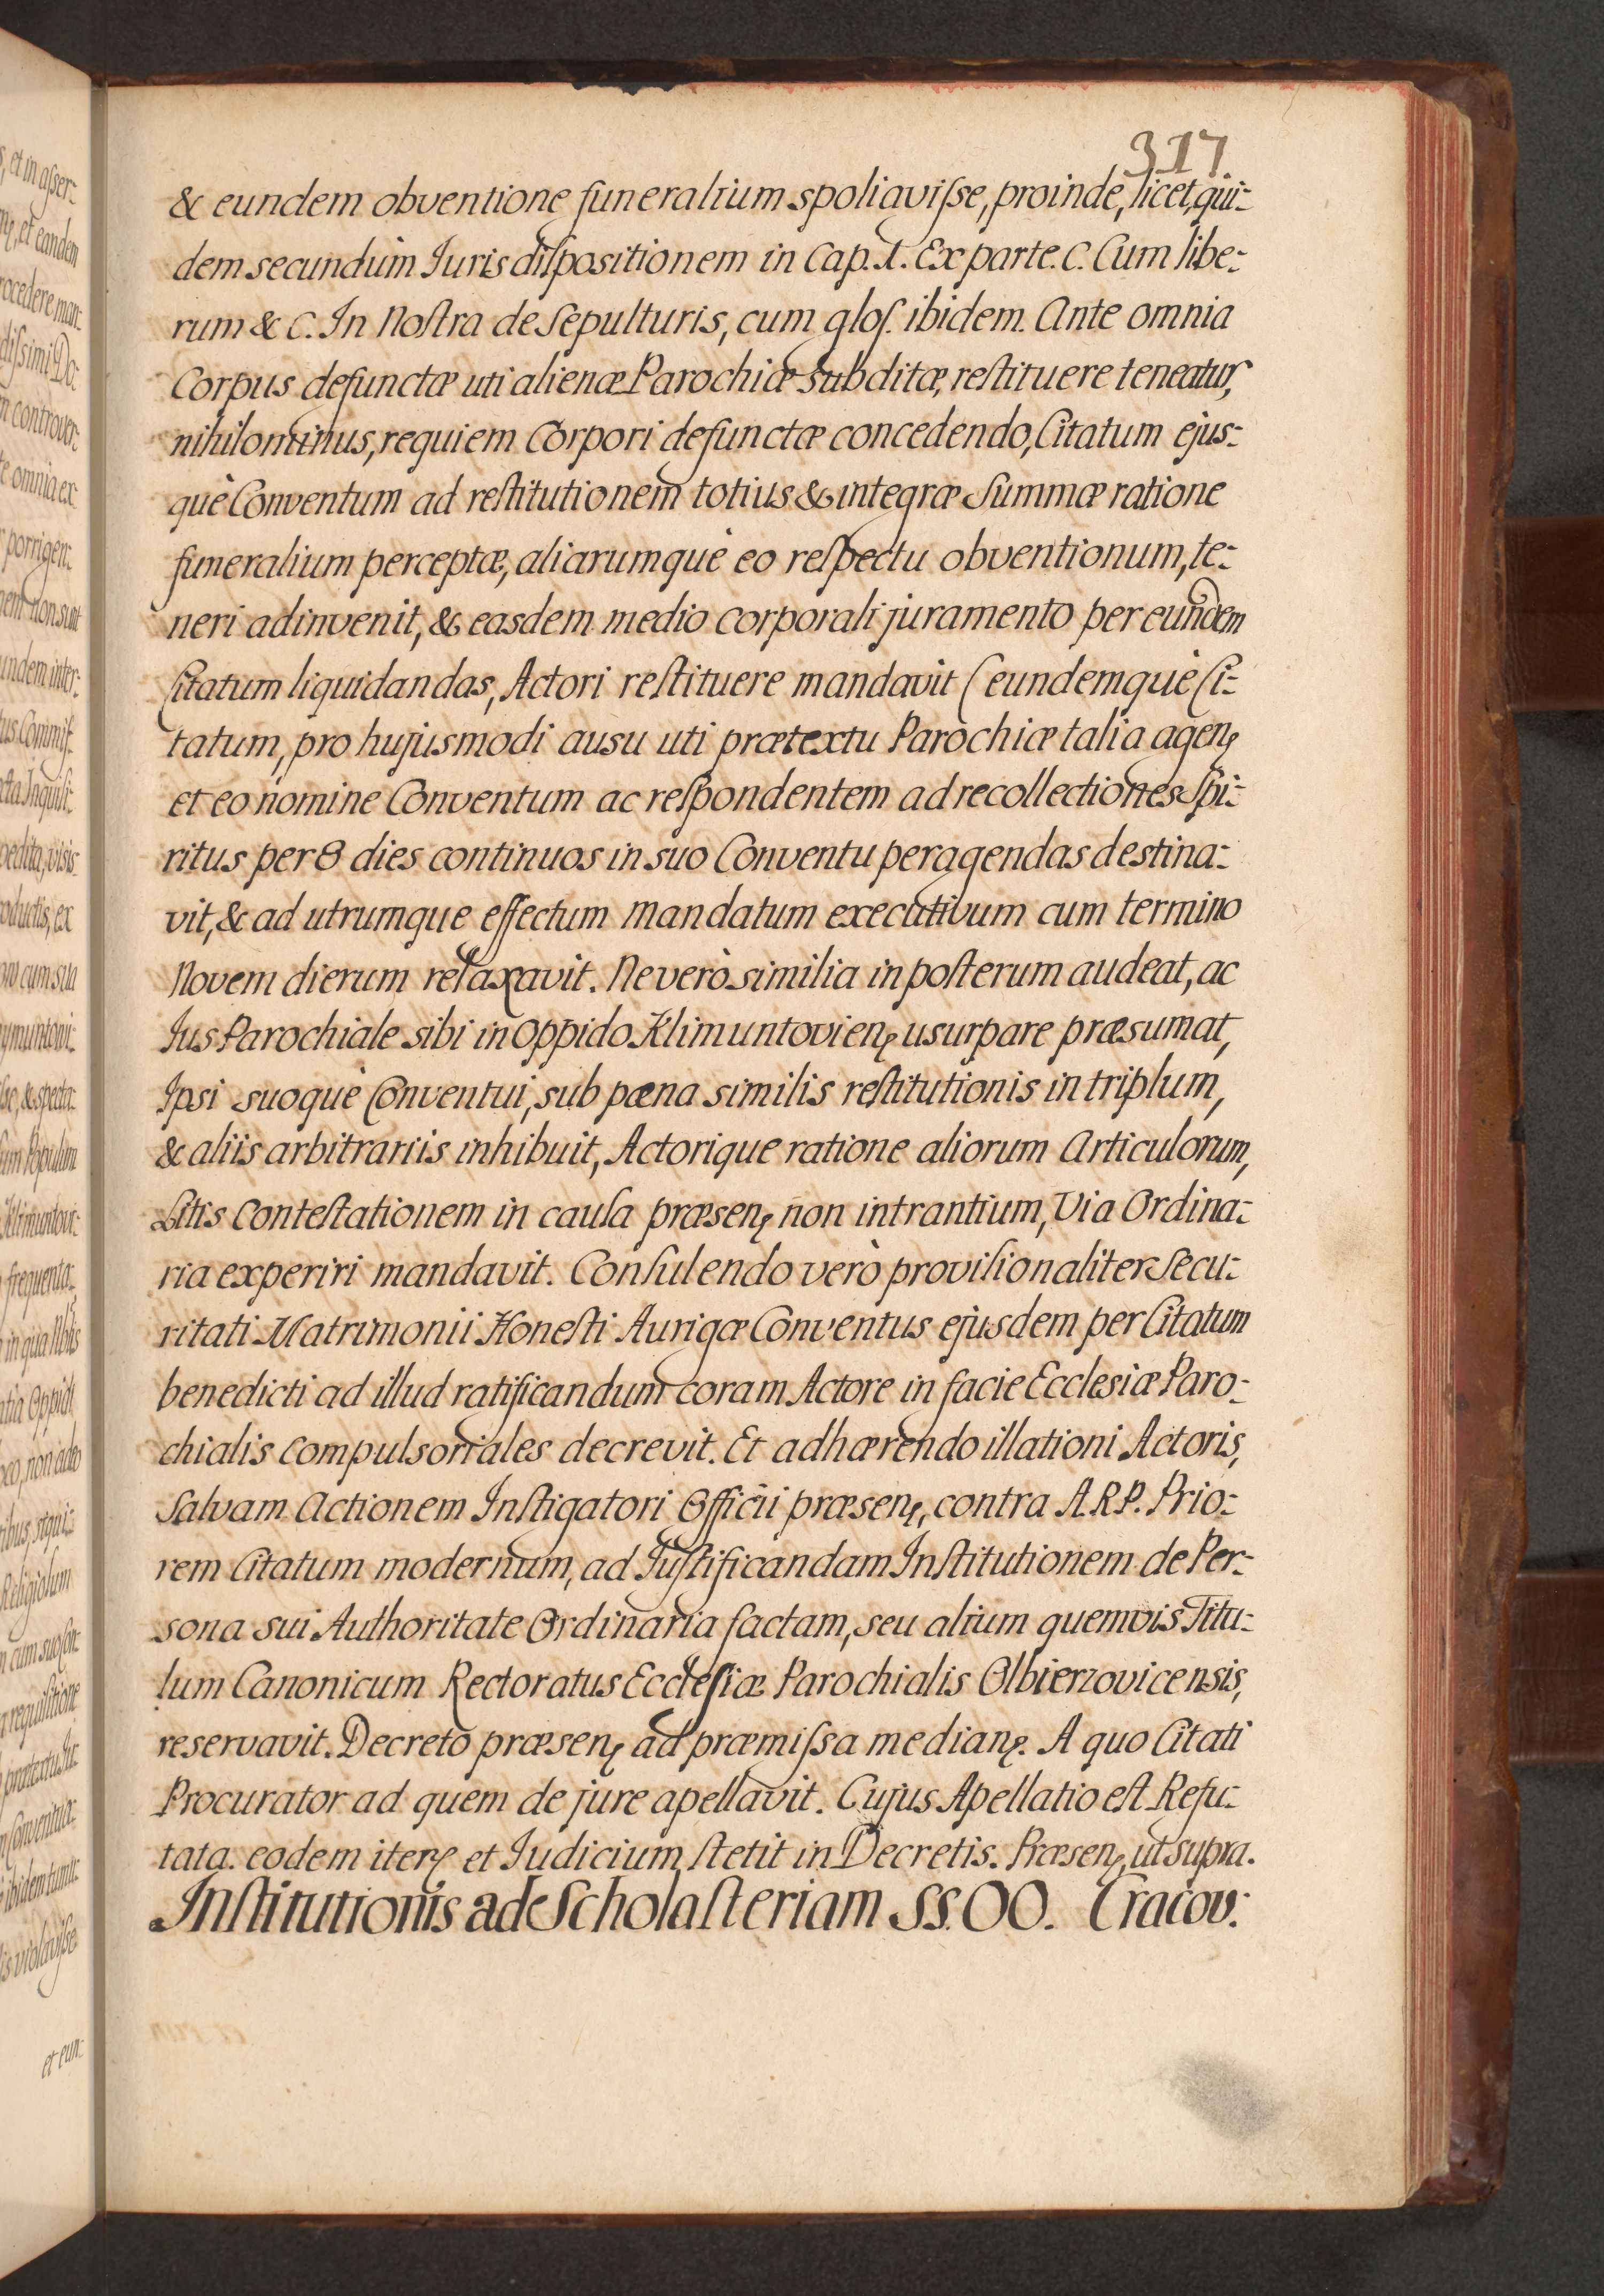 317
& eundem obventione funeralium spoliavisse, proinde, licet, qui-
dem secundum Iuris dispositionem in Cap. 1. Ex parte. C. Cum libe-
rum & C. In Nostra de Sepulturis, cum glos. ibidem. Ante omnia
Corpus defunctæ uti alienæ Parochiæ Subditæ, restituere teneatur,
nihilominus, requiem Corpori defunctæ concedendo, Citatum ejus-
què Conventum ad restitutionem totius & integræ Summæ ratione
funeralium perceptæ, aliarumquè eo respectu obventionum, te-
neri adinvenit, & easdem medio corporali juramento per eundem
Citatum liquidandas, Actori restituere mandavit (eundemquè Ci-
tatum, pro hujusmodi ausu uti prætextu Parochiæ talia agenę
et eo nomine Conventum ac respondentem ad recollectiones Spi-
ritus per 8 dies continuos in suo Conventu peragendas destina-
vit, & ad utrumque effectum Mandatum executivum cum termino
Novem dierum relaxavit. Ne verò similia in posterum audeat, ac
Ius Parochiale sibi in Oppido Klimuntovienę usurpare præsumat,
Ipsi suoquè Conventui, sub pæna similis restitutionis in triplum,
& aliis arbitrariis inhibuit, Actorique ratione aliorum Articulorum,
Litis Contestationem in causa præsenę non intrantium, Via Ordina-
ria experiri mandavit. Consulendo verò provisionaliter Secu-
ritati Matrimonii Honesti Aurigæ Conventus ejusdem per Citatum
benedicti ad illud ratificandum coram Actore in facie Ecclesiæ Paro-
chialis compulsoriales decrevit. Et adhærendo illationi Actoris,
Salvam Actionem Instigatori Officii præsenę, contra A.R.P. Prio-
rem Citatum modernum, ad Iustificandam Institutionem de Per-
sona sui Authoritate Ordinaria factam, seu alium quemvis Titu-
lum Canonicum Rectoratus Ecclesiæ Parochialis Olbierzovicensis,
reservavit. Decreto præsenę ad præmissa medianę. A quo Citati
Procurator ad quem de jure apellavit. Cujus Apellatio est Refu-
tata. eodem iterę et Iudicium stetit in Decretis. Præsenę, ut supra.
Institutionis ad Scholasteriam SS. OO. Cracov: